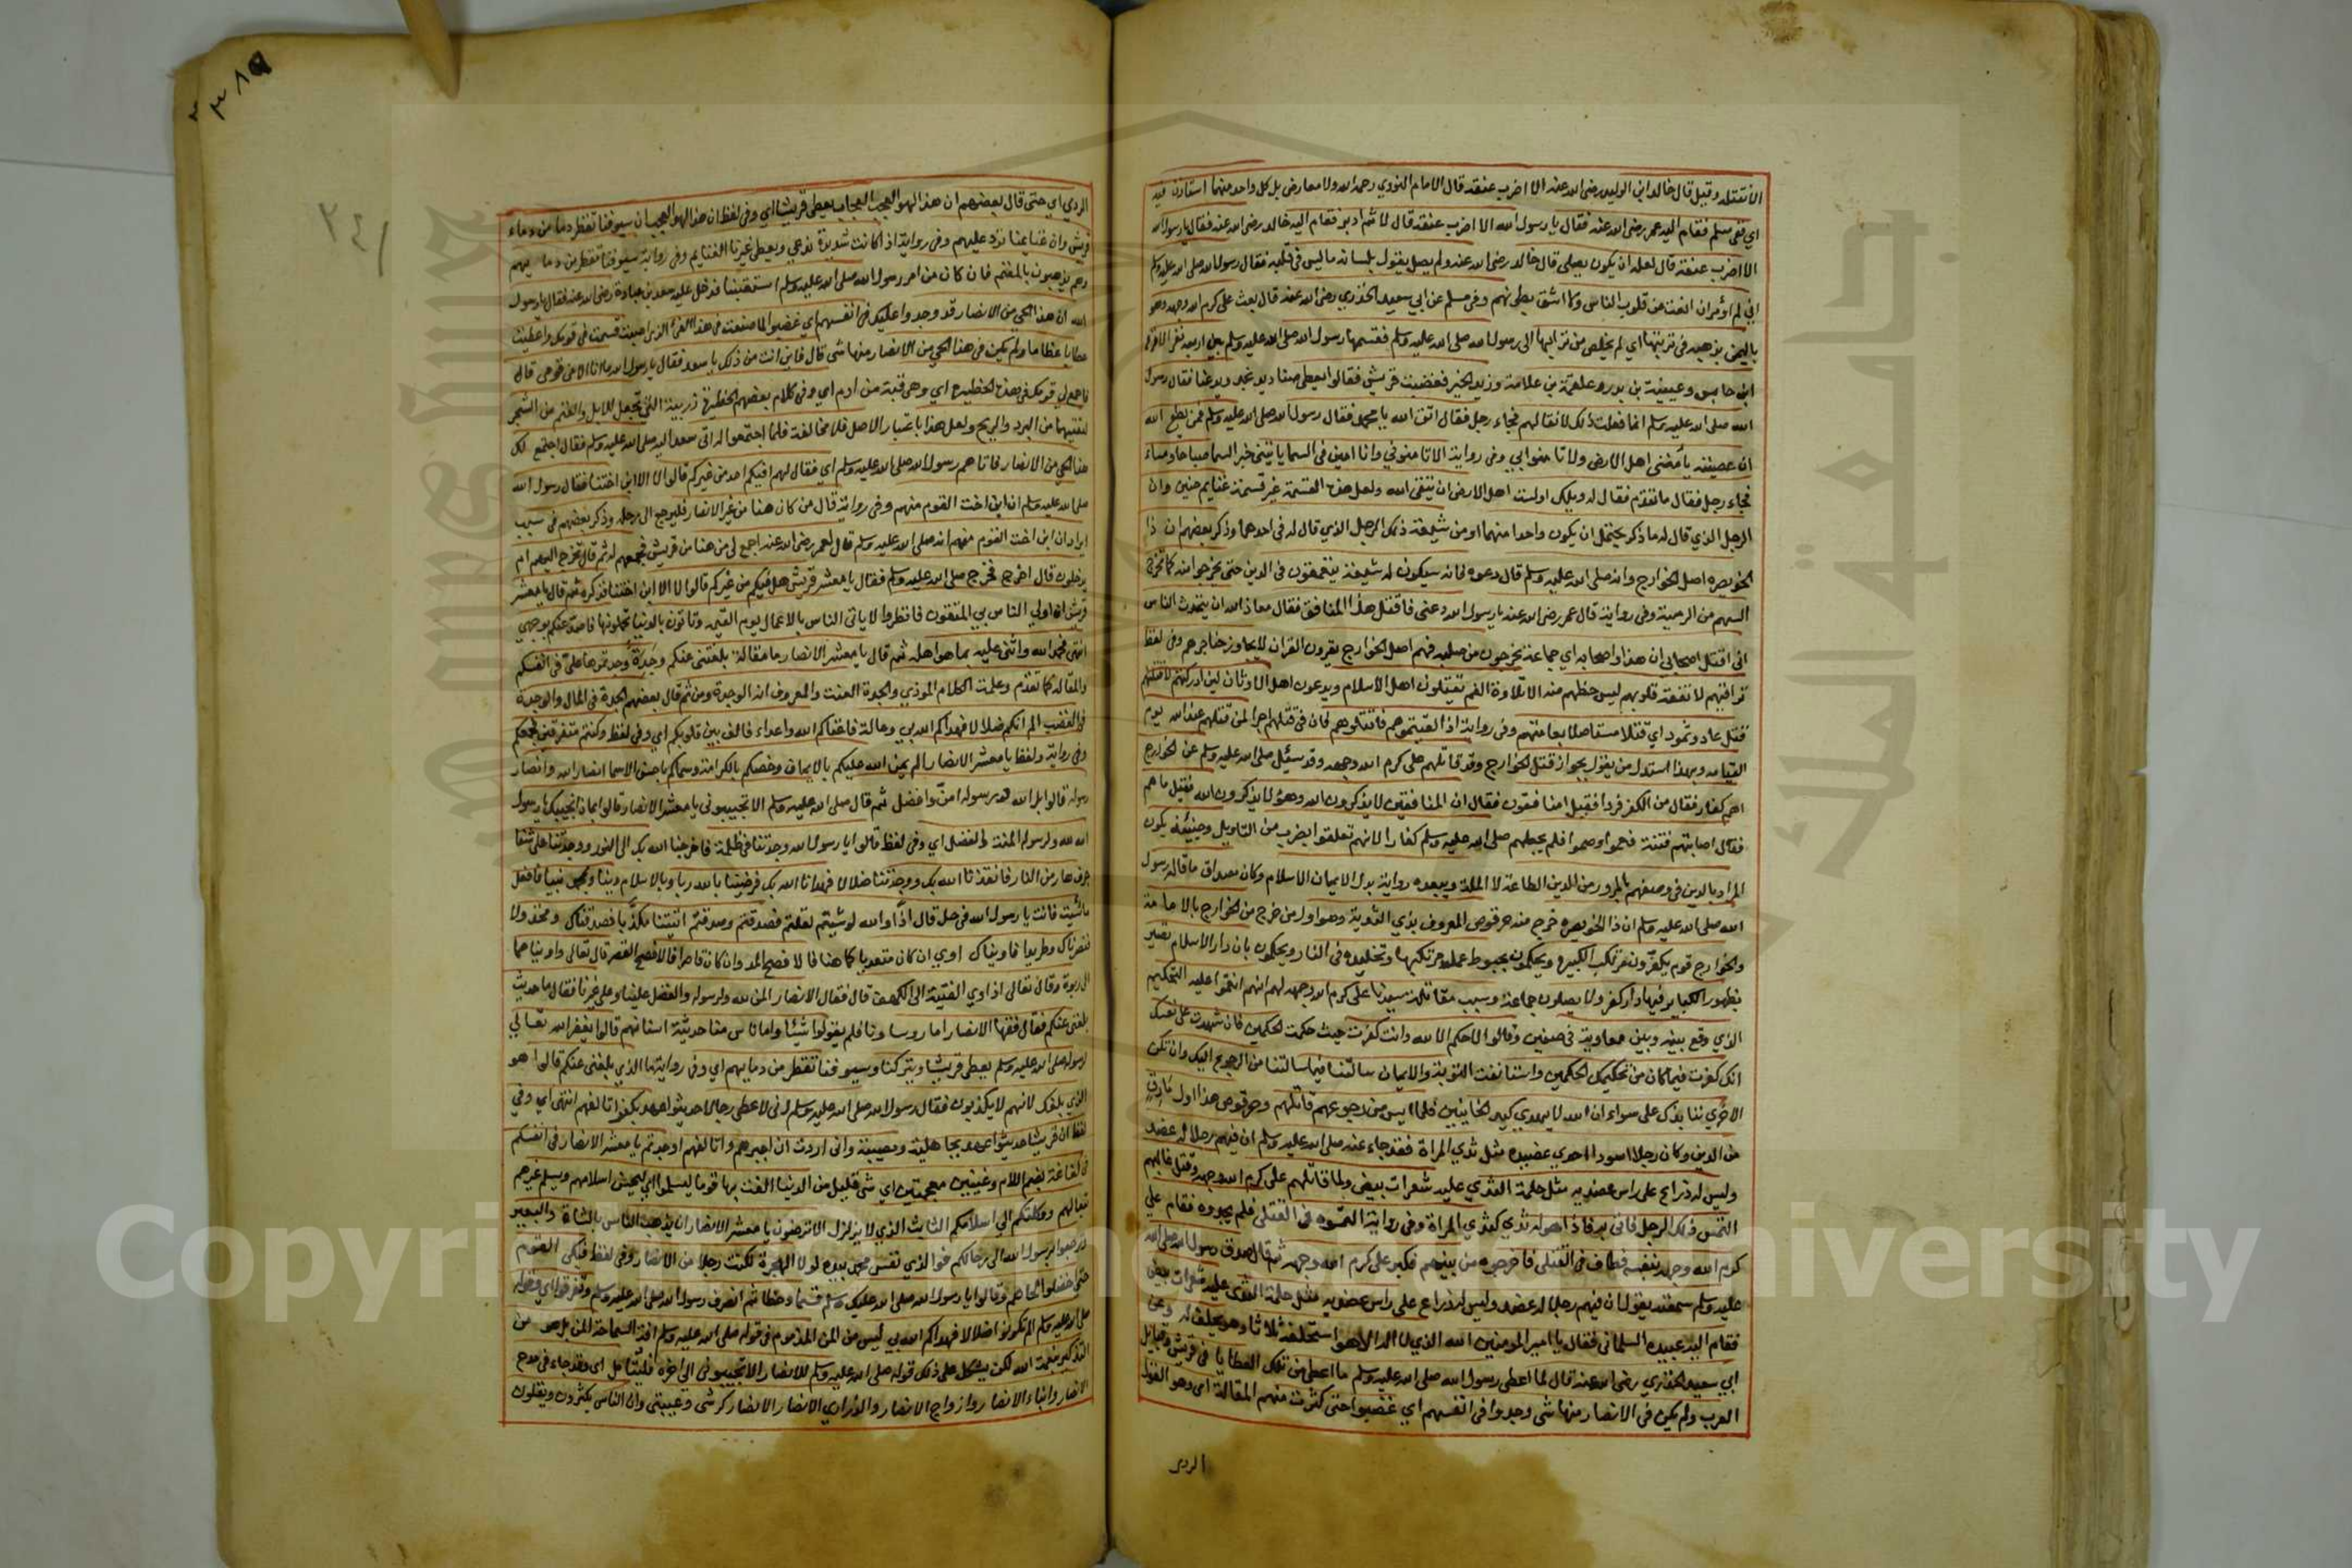 الا نقتله وقيل قال خالد ابن الوليد رضى الله عنه الا اضرب عنقه قال الامام النووي رحمه الله ولا معارض بل كل واحد منهما استاذن فيه
اي ففي مسلم فقام اليه عمر رضى الله عنه فقال يا رسول الله الا اضرب عنقه قال لا ثم ادبر فقام اليه خالد رضى الله عنه فقال يا رسول الله
الا اضرب عنقه قال لعله ان يكون يصلى قال خالد رضى الله عنه ولم يصل يقول بلسانه ما ليس فى قلبه فقال رسول الله صلى الله عليه وسلم
انى لم اؤمر ان انقب عن قلوب الناس ولا اشق بطونهم وفى مسلم عن ابي سعيد الخدري رضى الله عنه قال بعث على كرم الله وجهه وهو
باليمن بذهبه فى تربتها اي لم يخلص من ترابها الى رسول الله صلى الله عليه وسلم فقسمها رسول الله صلى الله عليه وسلم بين اربعة نفر الاقرع
ابن حابس وعيينة بن بدر وعلقمة بن علاثة وزيد الخير فغضبت قريش فقالوا يعطى صناديد نجد ويدعنا فقال رسول
الله صلى الله عليه وسلم انما فعلت ذلك لاتالفهم فجاء رجل فقال اتق الله يا محمد فقال رسول الله صلى الله عليه وسلم فمن يطع الله
ان عصيته يأمننى اهل الارض ولا تامنوابي وفى رواية الا تامنوني وانا امين فى السما ياتينى خبر السما صباحا ومساء
فجاء رجل فقال ما تقدم فقال له ويلك اولست اهل الارض ان يتقى الله ولعل هذه القسمة غير قسمة غنايم حنين وان
الرجل الذي قال له ما ذكر يحتمل ان يكون واحدا منهما او من شيعة ذلك الرجل الذي قال له فى احدهما وذكر بعضهم ان ذا
الخويصره اصل الخوارج وانه صلى الله عليه وسلم قال دعوه فانه سيكون له شيعة يتعمقون فى الدين حتى يخرجوا منه كما يخرج
السهم من الرمية وفى رواية قال عمر رضى الله عنه يا رسول الله دعنى فاقتل هذا المنافق فقال معاذ الله ان يتحدث الناس
انى اقتل اصحابي ان هذا واصحابه اي جماعة يخرجون من صلبه فهم اصل الخوارج يقرون القران لا يجاوز حناجرهم وفى لفظ
تراقيهم لا تفقه قلوبهم ليس حظهم منه الا تلاوة الفم يقتلون اهل الاسلام ويدعون اهل الاوثان لين ادركتهم لاقتلنهم
قتل عاد وثمود اي قتلا مستاصلا بعامتهم وفى رواية اذا لقيتموهم فاقتلوهم فان فى قتلهم اجرا لمن قتلهم عند الله يوم
القيامه وبهذا استدل من يقول بجواز قتل الخوارج وقد قاتلهم على كرم الله وجهه وقد سئل صلى الله عليه وسلم عن الخوارج
اهم كفار فقال من الكفر فروا فقيل امنافقون فقال ان المنافقين لا يذكرون الله وهؤلا يذكرون الله فقيل ما هم
فقال اصابتهم فتنة فعموا وصموا فلم يجعلهم صلى الله عليه وسلم كفارا لانهم تعلقوا بضرب من التاويل وحينئذ يكون
المراد بالدين فى وصفهم بالمرور من الدين الطاعة لا الملة ويبعده رواية بدل الايمان الاسلام وكان مصداق ما قاله رسول
الله صلى الله عليه وسلم ان ذا الخويصره خرج منه حرقوص المعروف بذي الثدية وهو اول من خرج من الخوارج بالامامة
والخوارج قوم يكفرون مرتكب الكبيره ويحكمون بحبوط عمل مرتكبها وتخليده فى النار ويحكمون بان دار الاسلام تصير
بظهور الكبايز فيها دار كفر ولا يصلون جماعة وسبب مقاتلة سيدنا على كرم الله وجهه لهم انهم انقموا عليه التحكيم
الذي وقع بينه وبين معاوية فى صفين وقالوا لا حكم الا لله وانت كفرت حيث حكمت الحكمين فان شهدت على نفسك
انك كفرت فيما كان من تحكيمك الحكمين واستانفت التوبة والايمان سالتنا فيما سالتنا من الرجوع اليك وان تكن
الاخرى ننابذك على سواء ان الله لا يهدي كيد الخاينين فلما ايس من رجوعهم قاتلهم وحرقوص هذا اول مارق
من الدين وكان رجلا اسود احدي عضديه مثل ثدي المراة فقد جاء عنه صلى الله عليه وسلم ان فيهم رجلا له عضد
وليس له ذراع على راس عضده مثل حلمة الثدي عليه شعرات بيض ولما قاتلهم على كرم الله وجهه وقتل غالبهم
التمس ذلك الرجل فاتى به فاذا هو له ثدي كثدي المراة وفى رواية التمسوه فى القتلى فلم يجدوه فقام على
كرم الله وجهه بنفسه فطاف فى القتلى فاخرجوه من بينهم فكبر على كرم الله وجهه ثم قال صدق رسول الله صلى الله
عليه وسلم سمعته يقول ان فيهم رجلا له عضد وليس له ذراع على راس عضديه مثل حلمة الثدى عليه شعرات بيض
فقام اليه عبيده السلمانى فقال يا امير المومنين الله الذي لا اله الا هو استحلفه ثلاثا وهو يحلف له وعن
ابي سعيد الخدري رضى الله عنه قال لما اعطى رسول الله صلى الله عليه وسلم ما اعطى من تلك العطايا فى قريش وقبايل
العرب ولم يكن فى الانصار منها شى وجدوا فى انفسهم اي غضبوا حتى كثرت منهم المقالة اى وهو القول
الردى
٣٨٩
٢٤١
الردي اي حتى قال بعضهم ان هذا لهو العجب العجاب يعطى قريشا اي وفى لفظ ان هذا لهو العجب ان سيوفنا تقطر دما من دماء
قريش وان غنايمنا ترد عليهم وفى رواية اذا كانت شديدة ندعي ويعطى غيرنا الغنايم وفى رواية سيوفنا تقطر من دمايهم
وهم يذهبون بالمغنم فان كان من امر رسول الله صلى الله عليه وسلم استعتبنا فدخل عليه سعد بن عبادة رضى الله عنه فقال يا رسول
الله ان هذا الحي من الانصار قد وجدوا عليك فى انفسهم اي غضبوا لما صنعت فى هذا الفئ الذي اصبت قسمت فى قومك واعطيت
عطايا عظاما ولم يكن فى هذا الحي من الانصار منها شى قال فاين انت من ذلك يا سعد فقال يا رسول الله ما انا الا من قومى قال
فاجمع لي قومك فى هذه الحظيرة اي وهى قبة من ادم اي وفى كلام بعضهم الحظيرة زريبة التى تجعل للابل والغنم من الشجر
لتقيهما من البرد والريح ولعل هذا باعتبار الاصل فلا مخالفة فلما اجتمعوا له اتى سعد اليه صلى الله عليه وسلم فقال اجتمع لك
هذا الحي من الانصار فاتاهم رسول الله صلى الله عليه وسلم اي فقال لهم افيكم احد من غيركم قالوا لا الا ابن اختنا فقال رسول الله
صلى الله عليه وسلم ان ابن اخت القوم منهم وفى رواية قال من كان هنا من غير الانصار فليرجع الى رحله وذكر بعضهم فى سبب
ايراد ان ابن اخت القوم منهم انه صلى الله عليه وسلم قال لعمر رضى الله عنه اجمع لى من هنا من قريش فجمعهم له ثم قال تخرج اليهم ام
يدخلون قال اخرج فخرج صلى الله عليه وسلم فقال يا معشر قريش هل فيكم من غيركم قالوا لا الا ابن اختنا فذكره ثم قال يا معشر
قريش ان اولى الناس بي المتقون فانظروا لا ياتى الناس بالاعمال يوم القيمه وتاتون بالدنيا تحملونها فاصد عنكم بوجهي
انتهى فحمد الله واثنى عليه بما هو اهله ثم قال يا معشر الانصار ما مقالة بلغتنى عنكم وجدة وجدتموها علىّ فى انفسكم
والمقالة كما تقدم وعلمت الكلام الموذي والجدة العتب والمعروف انه الموجدة ومن ثم قال بعضهم الجدة فى المال والموجدة
فى الغضب الم اتكم ضلالا فهداكم الله بي وعالة فاغناكم الله واعداء فالف بين قلوبكم اي وفى لفظ وكنتم متفرقين فجمعكم
وفى رواية ولفظ يا معشر الانصار الم يمن الله عليكم بالايمان وخصكم بالكرامة وسماكم باحسن الاسما انصار الله وانصار
رسوله قالوا بلى الله ورسوله امنّ وافضل ثم قال صلى الله عليه وسلم الا تجيبوني يا معشر الانصار قالوا بماذا نجيبك يا رسول
الله لله ولرسوله المنة والفضل اي وفى لفظ قالوا يا رسول الله وجدتنا فى ظلمة فاخرجنا الله بك الى النور ووجدتنا على شفا
جرف هار من النار فانقذنا الله بك ووجدتنا ضلالا فهدانا الله بك فرضينا بالله ربا وبالاسلام دينا وبمحمد نبيا فافعل
ما شيت فانت يا رسول الله فى حل قال اذا والله لو شيتم لقلتم فصدقتم وصدقتم اتيتنا مكذبا فصدقناك ومخذولا
فنصرناك وطريدا فاويناك اوي ان كان متعديا كما هنا فالافصح المد وان كان قاصرا فالافصح القصر قال تعالى واويناهما
الى ربوة وقال تعالى اذ اوي الفتية الى الكهف قال فقال الانصار المن لله ولرسوله والفضل علينا وعلى غيرنا فقال ما حديث
بلغنى عنكم فقال فقها الانصار اما روساونا فلم يقولوا شيئا واما ناس منا حديثة اسنانهم قالوا يغفر الله تعالى
لرسوله صلى الله عليه وسلم يعطى قريشا ويتركنا وسيوفنا تقطر من دمايهم اي وفى رواية ما الذي بلغنى عنكم قالوا هو
الذي بلغك لانهم لا يكذبون فقال رسول الله صلى الله عليه وسلم انى لاعطى رجالا حديثوا عهد بكفر اتالفهم انتهى اي وفي
لفظ ان قريشا حديثوا عهد بجاهلية ومصيبة وانى اردت ان اجبرهم واتالفهم اوجدتم يا معشر الانصار فى انفسكم
فى لعاعة بضم اللام وعينين مهملتين اي شى قليل من الدنيا الفت بها قوما ليسلموا اي ليحسن اسلامهم ويسلم غيرهم
تبعا لهم ووكلتكم الى اسلامكم الثابت الذي لا يزلزل الا ترضون يا معشر الانصار ان يذهب الناس بالشاة والبعير
وترجعوا برسول الله الى رحالكم فوالذي نفس محمد بيده لولا الهجرة لكنت رجلا من الانصار وفى لفظ فبكى القوم
حتى اخضلوا لحاهم وقالوا يا رسول الله صلى الله عليك وسلم قسما وحظا ثم انصرف رسول الله صلى الله عليه وسلم وتفرقوا اي وقوله
صلى الله عليه وسلم الم تكونوا ضلالا فهداكم الله بي ليس من المن المذموم فى قوله صلى الله عليه وسلم افة السماحة المن بل هو من
التذكير بنعمة الله لكن يشكل على ذلك قوله صلى الله عليه وسلم للانصار الا تجيبوني الى اخره فليتامل اى وقد جاء فى مدح
الانصار وابناء الانصار وازواج الانصار والذراري الانصار الانصار كرشى وعيبتى وان الناس يكثرون ويقلون
Copyright © King Saud University
جامعة الملك سعود